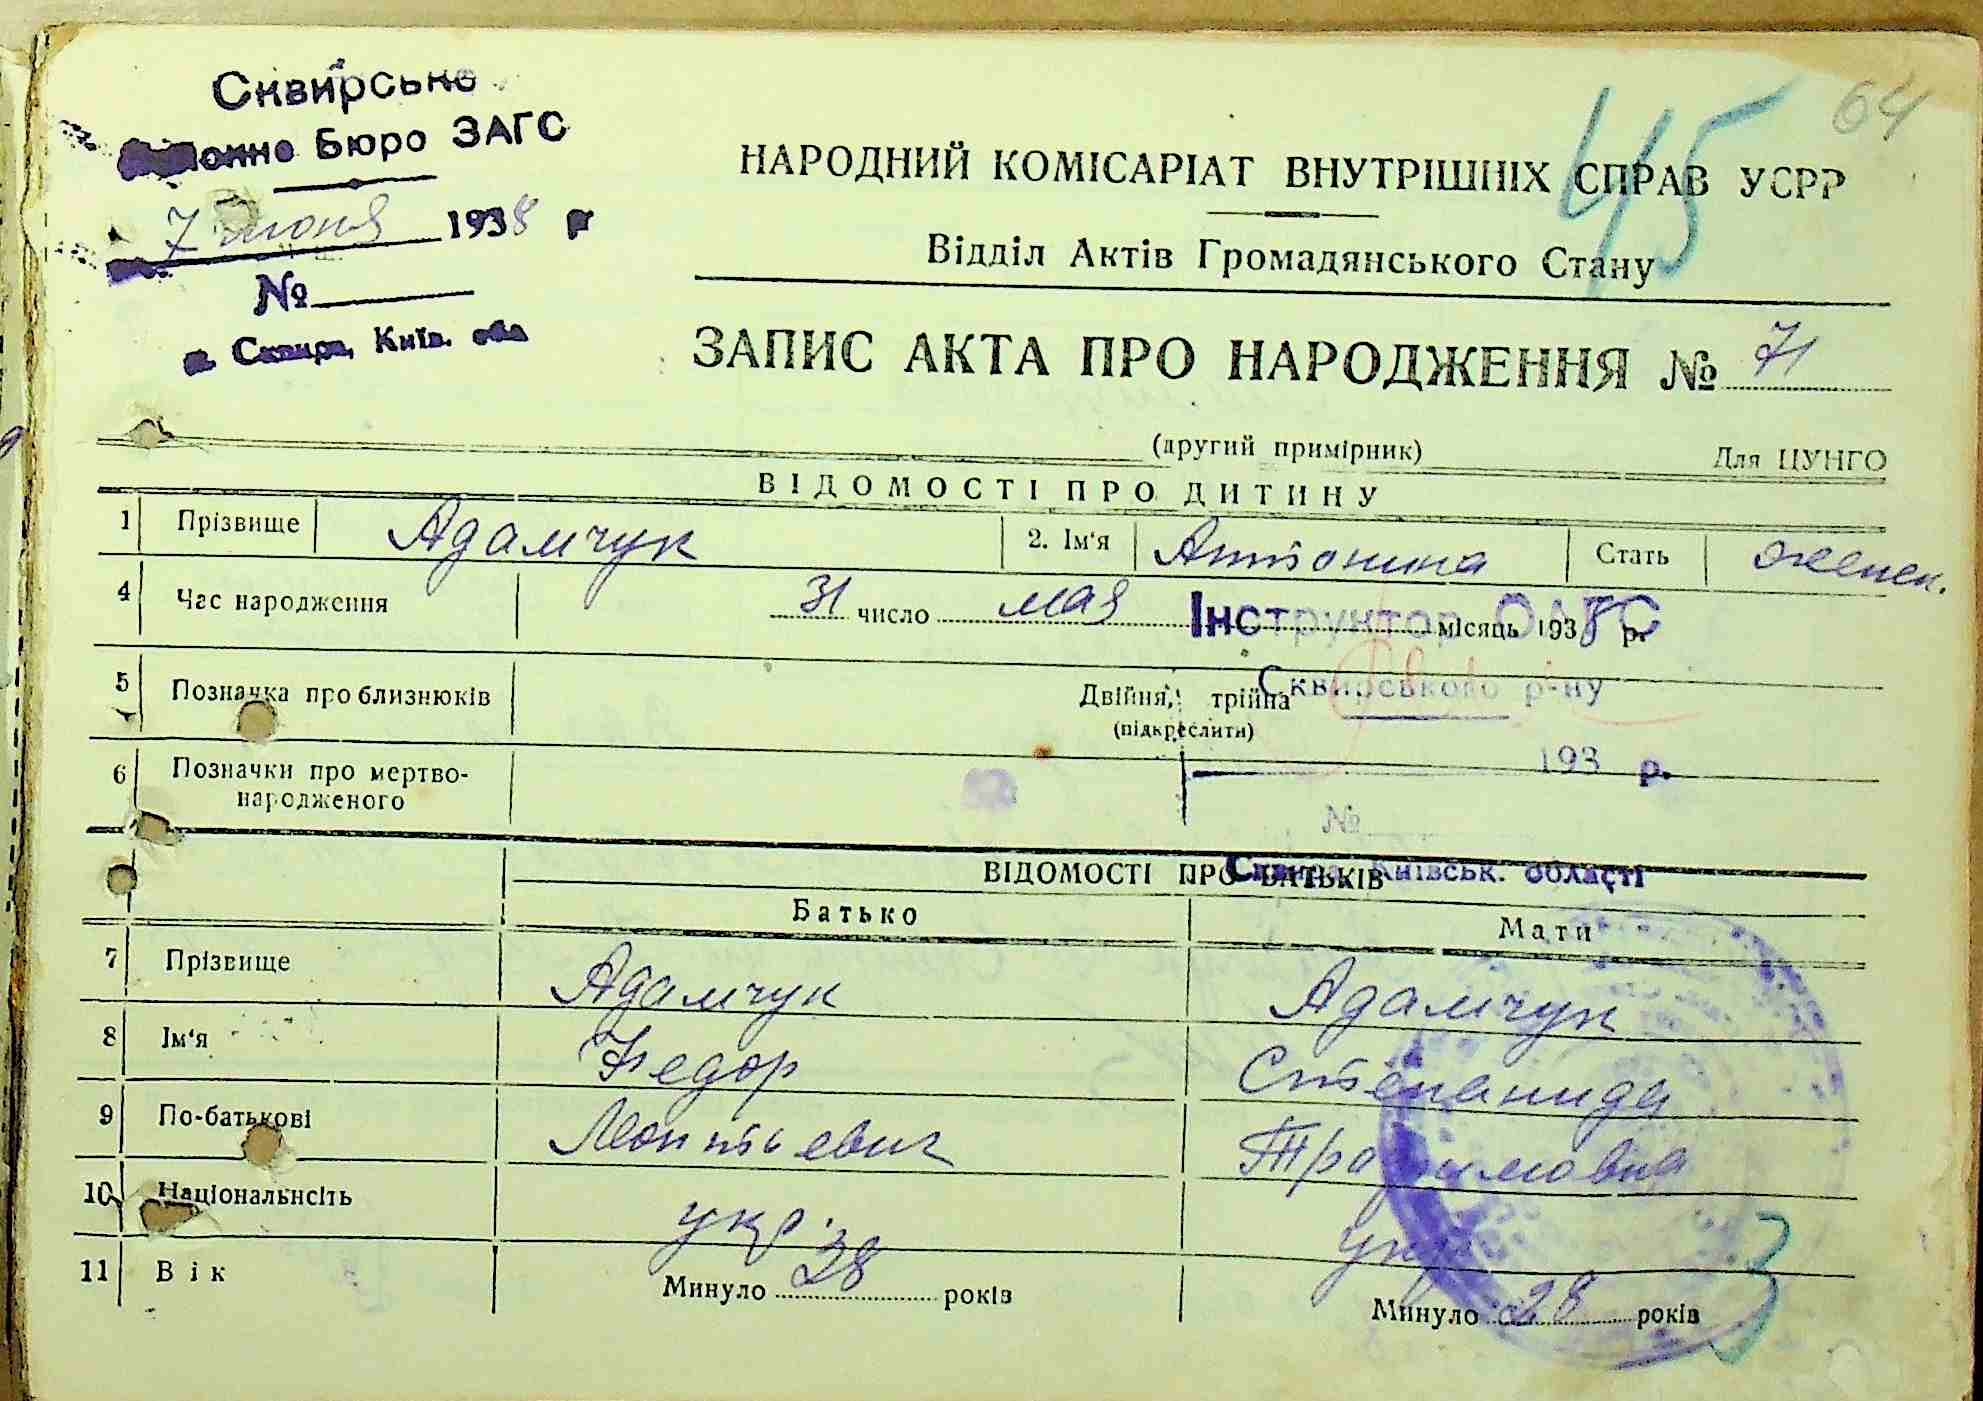 Сквирське
Бюро ЗАГС
7 июня 1938 р
№
м. Сквира, Київ. обл
64
45
НАРОДНИЙ КОМІСАРІАТ ВНУТРІШНІХ СПРАВ УСРР
Відділ Актів Громадянського Стану
ЗАПИС АКТА ПРО НАРОДЖЕННЯ № 71
(другий примірник) Для ЦУНГО
ВІДОМОСТІ ПРО ДИТИНУ
1 Прізвище Адамчук 2. Ім'я Антонина Стать женск.
4 Час народження 31 число мая місяць 1938 р.
Інструктор ОАГС
5 Позначка про близнюків Двійня, трійня
(підкреслити)
Сквирського р-ну
6 Позначки про мертво-
народженого
193 р.
№
Сквира Київськ. області
ВІДОМОСТІ ПРО БАТЬКІВ
Батько Мати
7 Прізвище Адамчук Адамчук
8 Ім'я Федор Степанида
9 По-батькові Леонтьевич Трофимовна
10 Національнсіть укр. укр
11 Вік Минуло 28 років Минуло 28 років
3